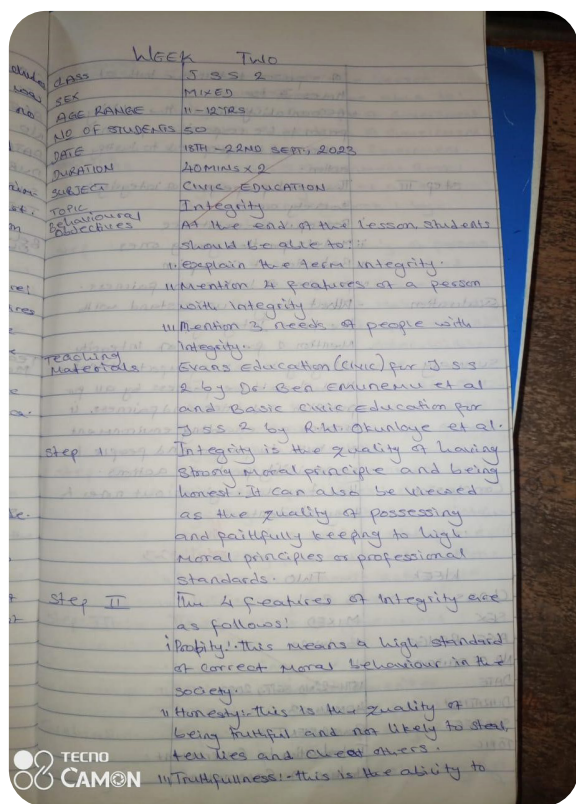 WEEK TWO
CLASS JSS 2
SEX MIXED
AGE RANGE 11-12YRS
NO OF STUDENTS 50
DATE 18TH - 22ND SEPT, 2023
DURATION 40MINS x 2
SUBJECT CIVIC EDUCATION
TOPIC Integrity
Behavioural Objectives At the end of the lesson, students
should be able to:
i. explain the term integrity.
ii Mention 4 features of a person
with Integrity
iii Mention 3 needs of people with
Integrity.
Teaching Materials Evans Education (Civic) for JSS
2 by Dr. Ben Emunemu et al
and Basic Civic Education for
JSS 2 by R.W. Okunloye et al.
Step I Integrity is the quality of having
strong moral principle and being
honest. It can also be viewed
as the quality of possessing
and faithfully keeping to high
moral principles or professional
standards.
Step II The 4 features of Integrity are
as follows:
i Probity: This means a high standard
of correct moral behaviour in the
society.
ii Honesty: This is the quality of
being truthful and not likely to steal,
tell lies and cheat others.
iii Truthfullness: this is the ability to
TECNO
CAMON